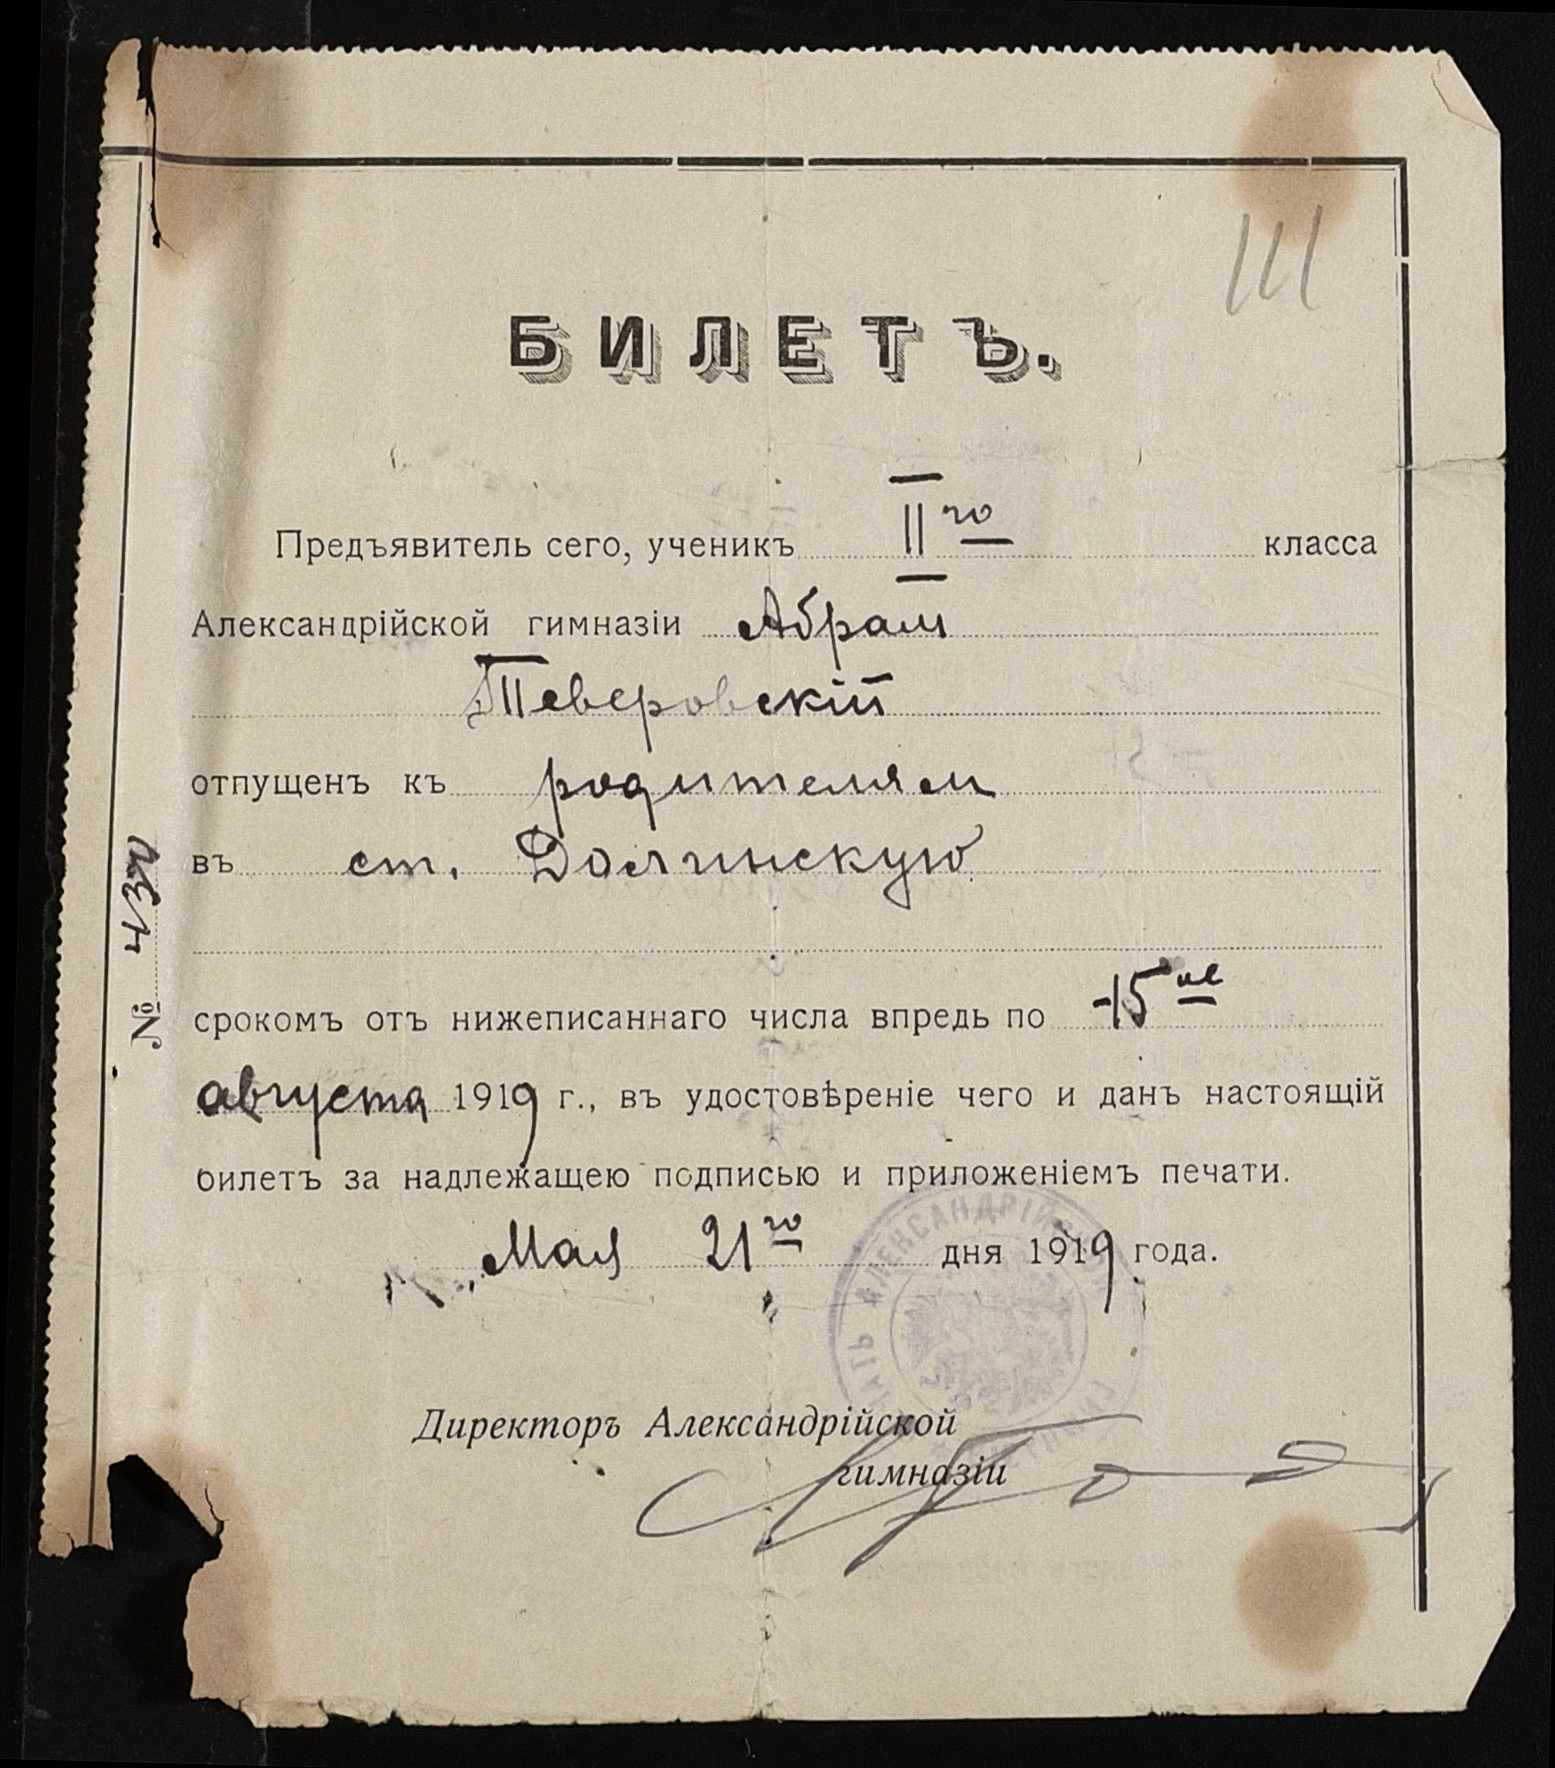 111
БИЛЕТЪ.
Предъявитель сего, ученикъ II го класса
Александрійской гимназіи Абрам
Теверовскій
отпущенъ къ родителям
въ ст. Долинскую
№ 430
срокомъ отъ нижеписаннаго числа впредь по 15 ое
августа 1919 г., въ удостовѣреніе чего и данъ настоящій
билетъ за надлежащею подписью и приложеніемъ печати.
Мая 21 го дня 1919 года.
АЛЕКСАНДРІЙСК
Директоръ Александрійской
гимназіи